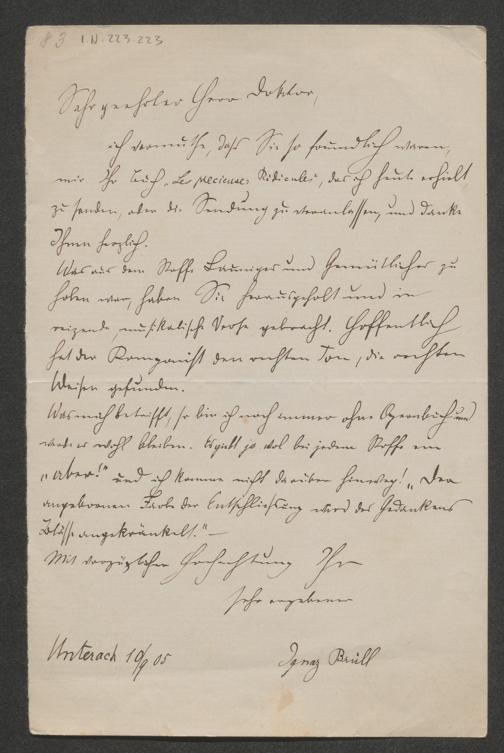 83 I.N. 223.223
Sehr geehrter Herr Doktor,
ich vermuthe, daß Sie so freundlich waren,
mir Ihr Buch „Les precieuses Ridicules“, das ich heute erhielt,
zu senden, oder die Sendung zu veranlassen, und danke
Ihnen herzlich.
Was aus dem Stoffe Launiges und Gemütliches zu
holen war, haben Sie herausgeholt und in
reizende, musikalische Verse gebracht. Hoffentlich
hat der Komponist den rechten Ton, die rechten
Weisen gefunden.
Was mich betrifft, so bin ich noch immer ohne Opernbuch und
werde es wohl bleiben. Es giebt ja wol bei jedem Stoffe ein
„aber!“ und ich komme nicht darüber hinweg! „Der
angebornen Farbe der Entschließung wird des Gedankens
Blässe angekränkelt.“ —
Mit vorzüglicher Hochachtung Ihr
sehr ergebener
Unterach 10/9 05 Ignaz Brüll